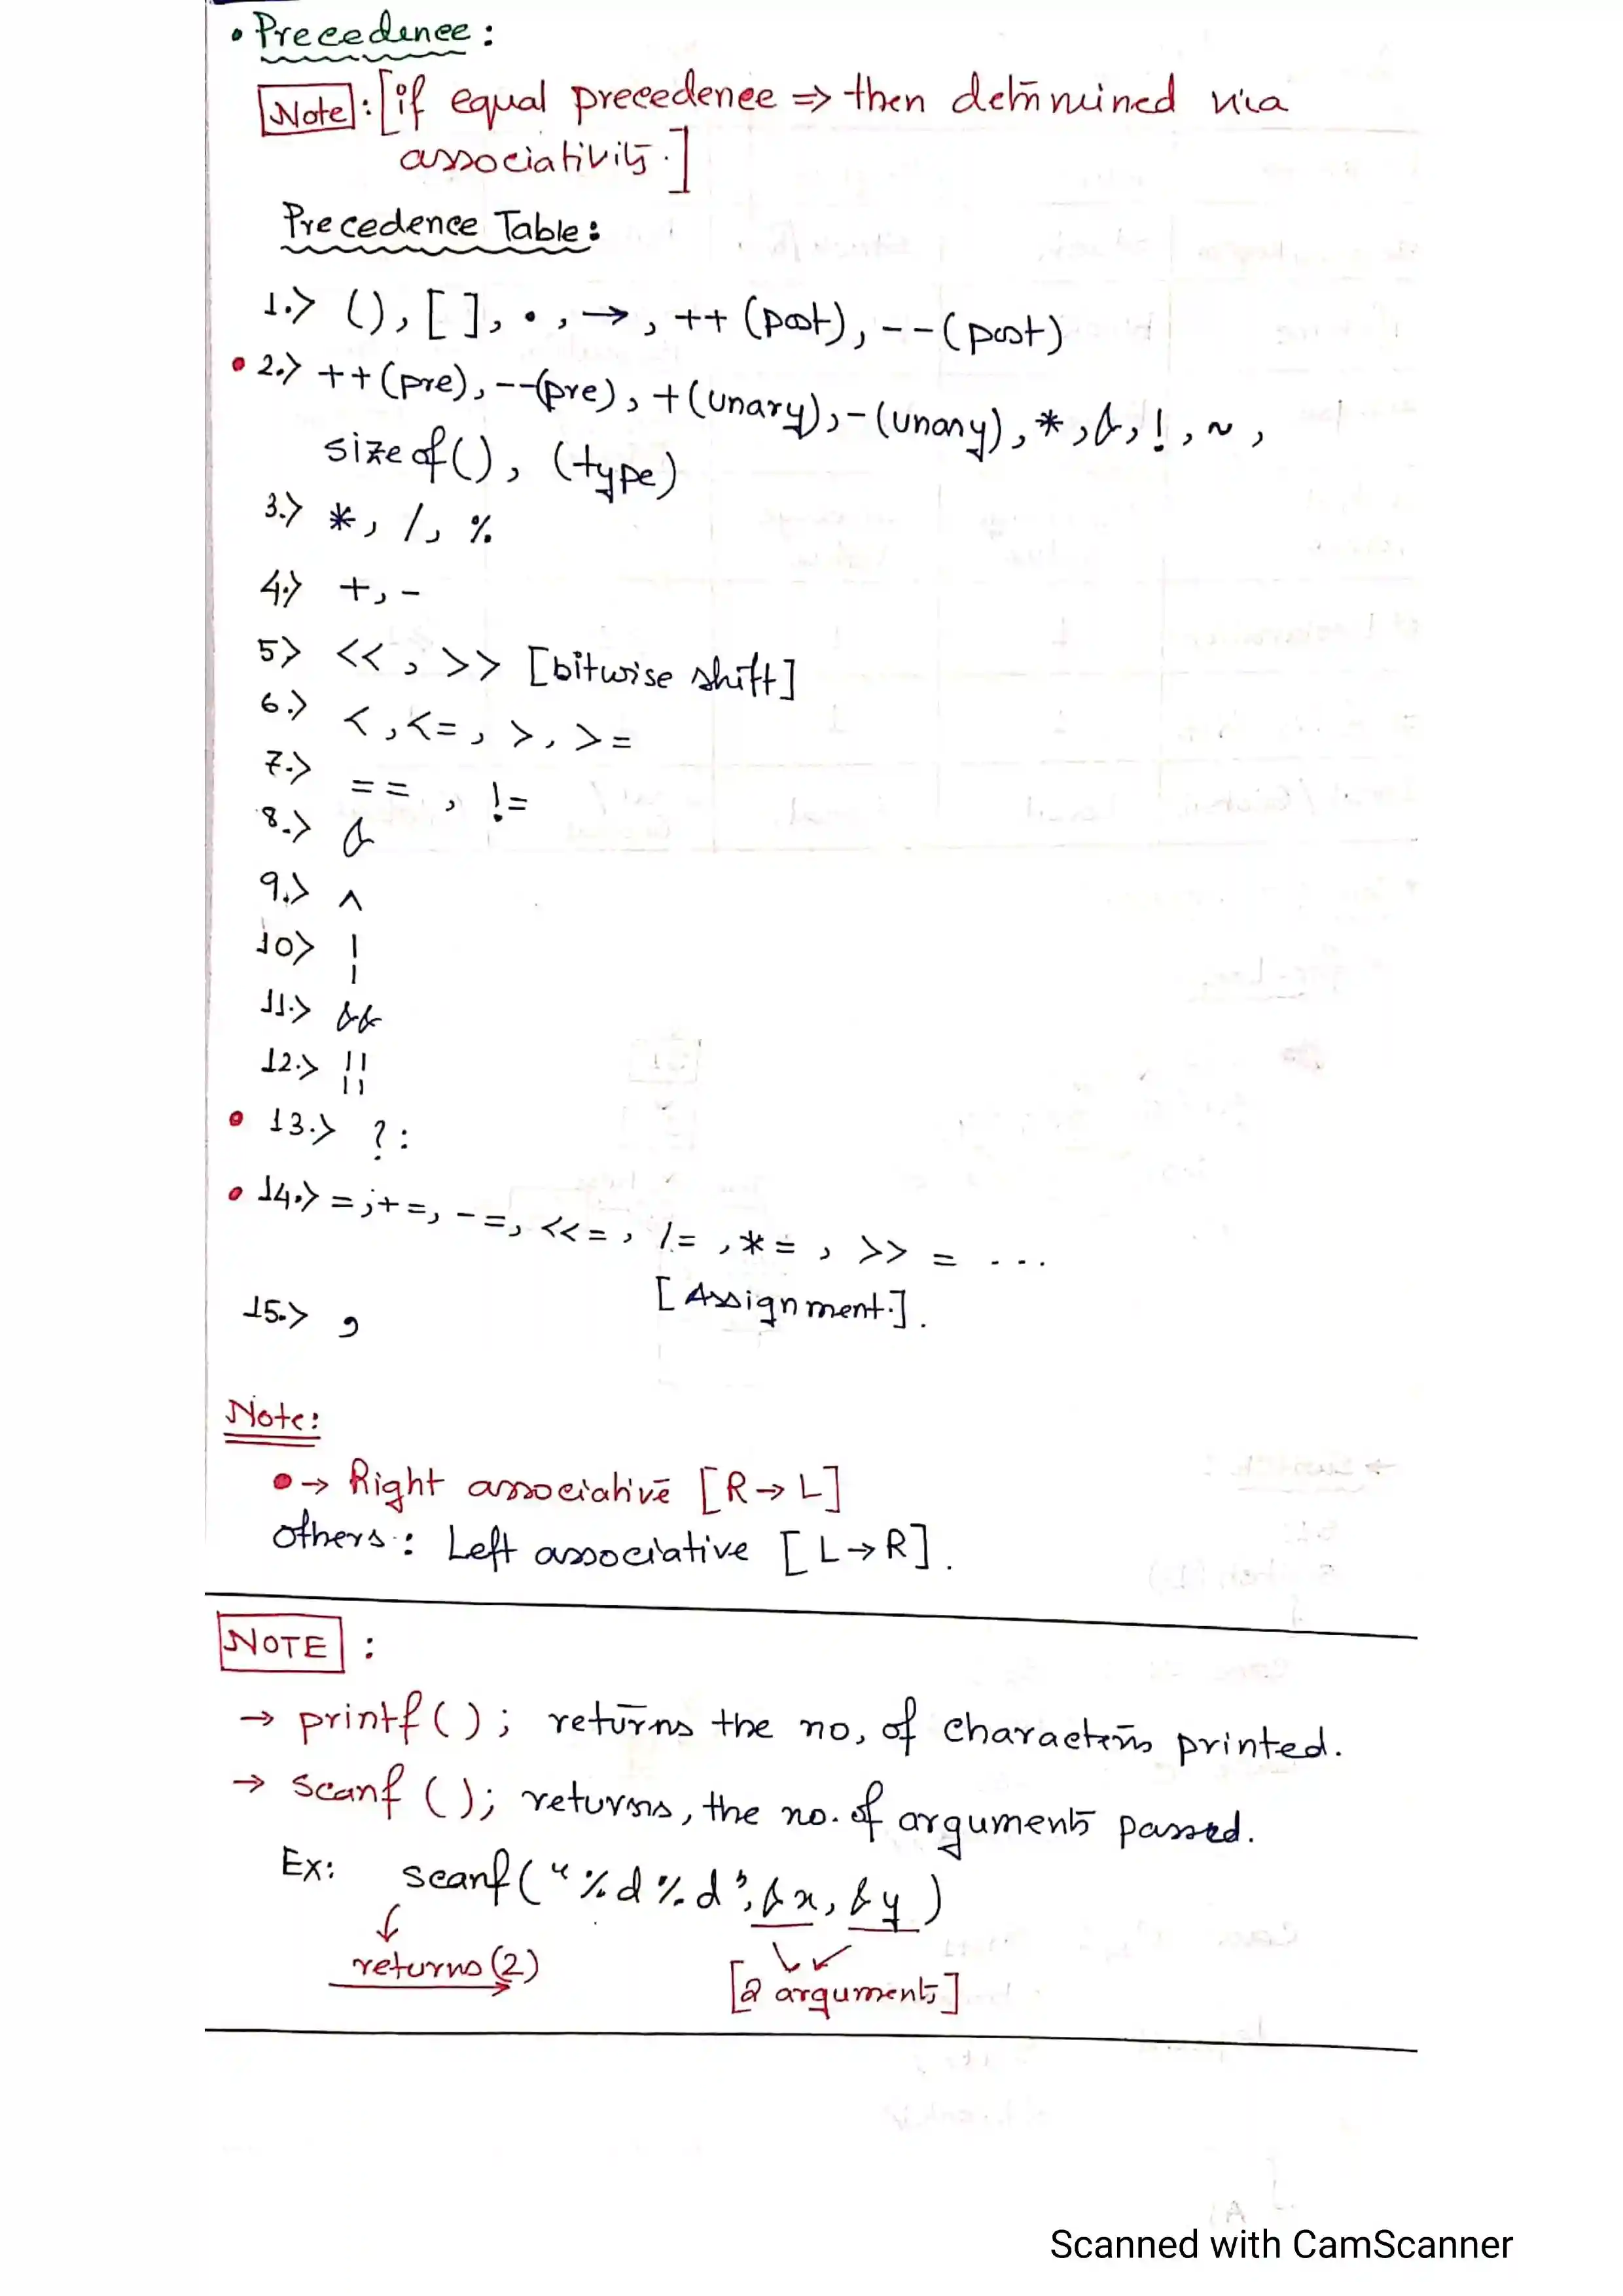 • Precedence :
Note : [if equal precedence => then determined via
associativity.]
Precedence Table :
1.> (), [ ], •, →, ++ (post), -- (post)
• 2.> ++(pre), --(pre), +(unary), -(unary), *, &, !, ~,
sizeof(), (type)
3.> *, /, %
4.> +, -
5> <<, >> [bitwise shift]
6.> <, <=, >, >=
7.> ==, !=
8.> &
9.> ^
10> |
11.> &&
12.> ||
• 13.> ? :
• 14.> =, +=, -=, <<=, /=, *=, >>= ...
[Assignment.].
15.> ,
Note:
• → Right associative [R→L]
others : Left associative [L→R].
NOTE :
→ printf(); returns the no. of characters printed.
→ scanf(); returns, the no. of arguments passed.
Ex: scanf("%d%d", &x, &y)
returns(2)
[2 arguments]
Scanned with CamScanner